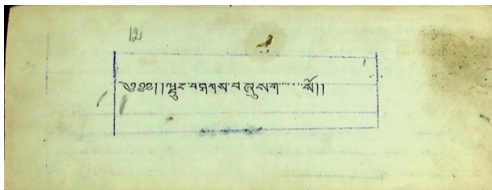 ༄༅༅། །ལྟུང་བཤགས་བཞུགས་.....སོ། །